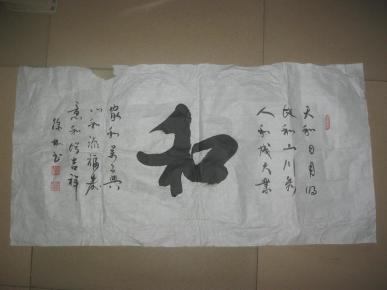 天和日月明
地和山川秀
人和成大業
和
家和万事興
心和添福寿
意和得吉祥
徐林书